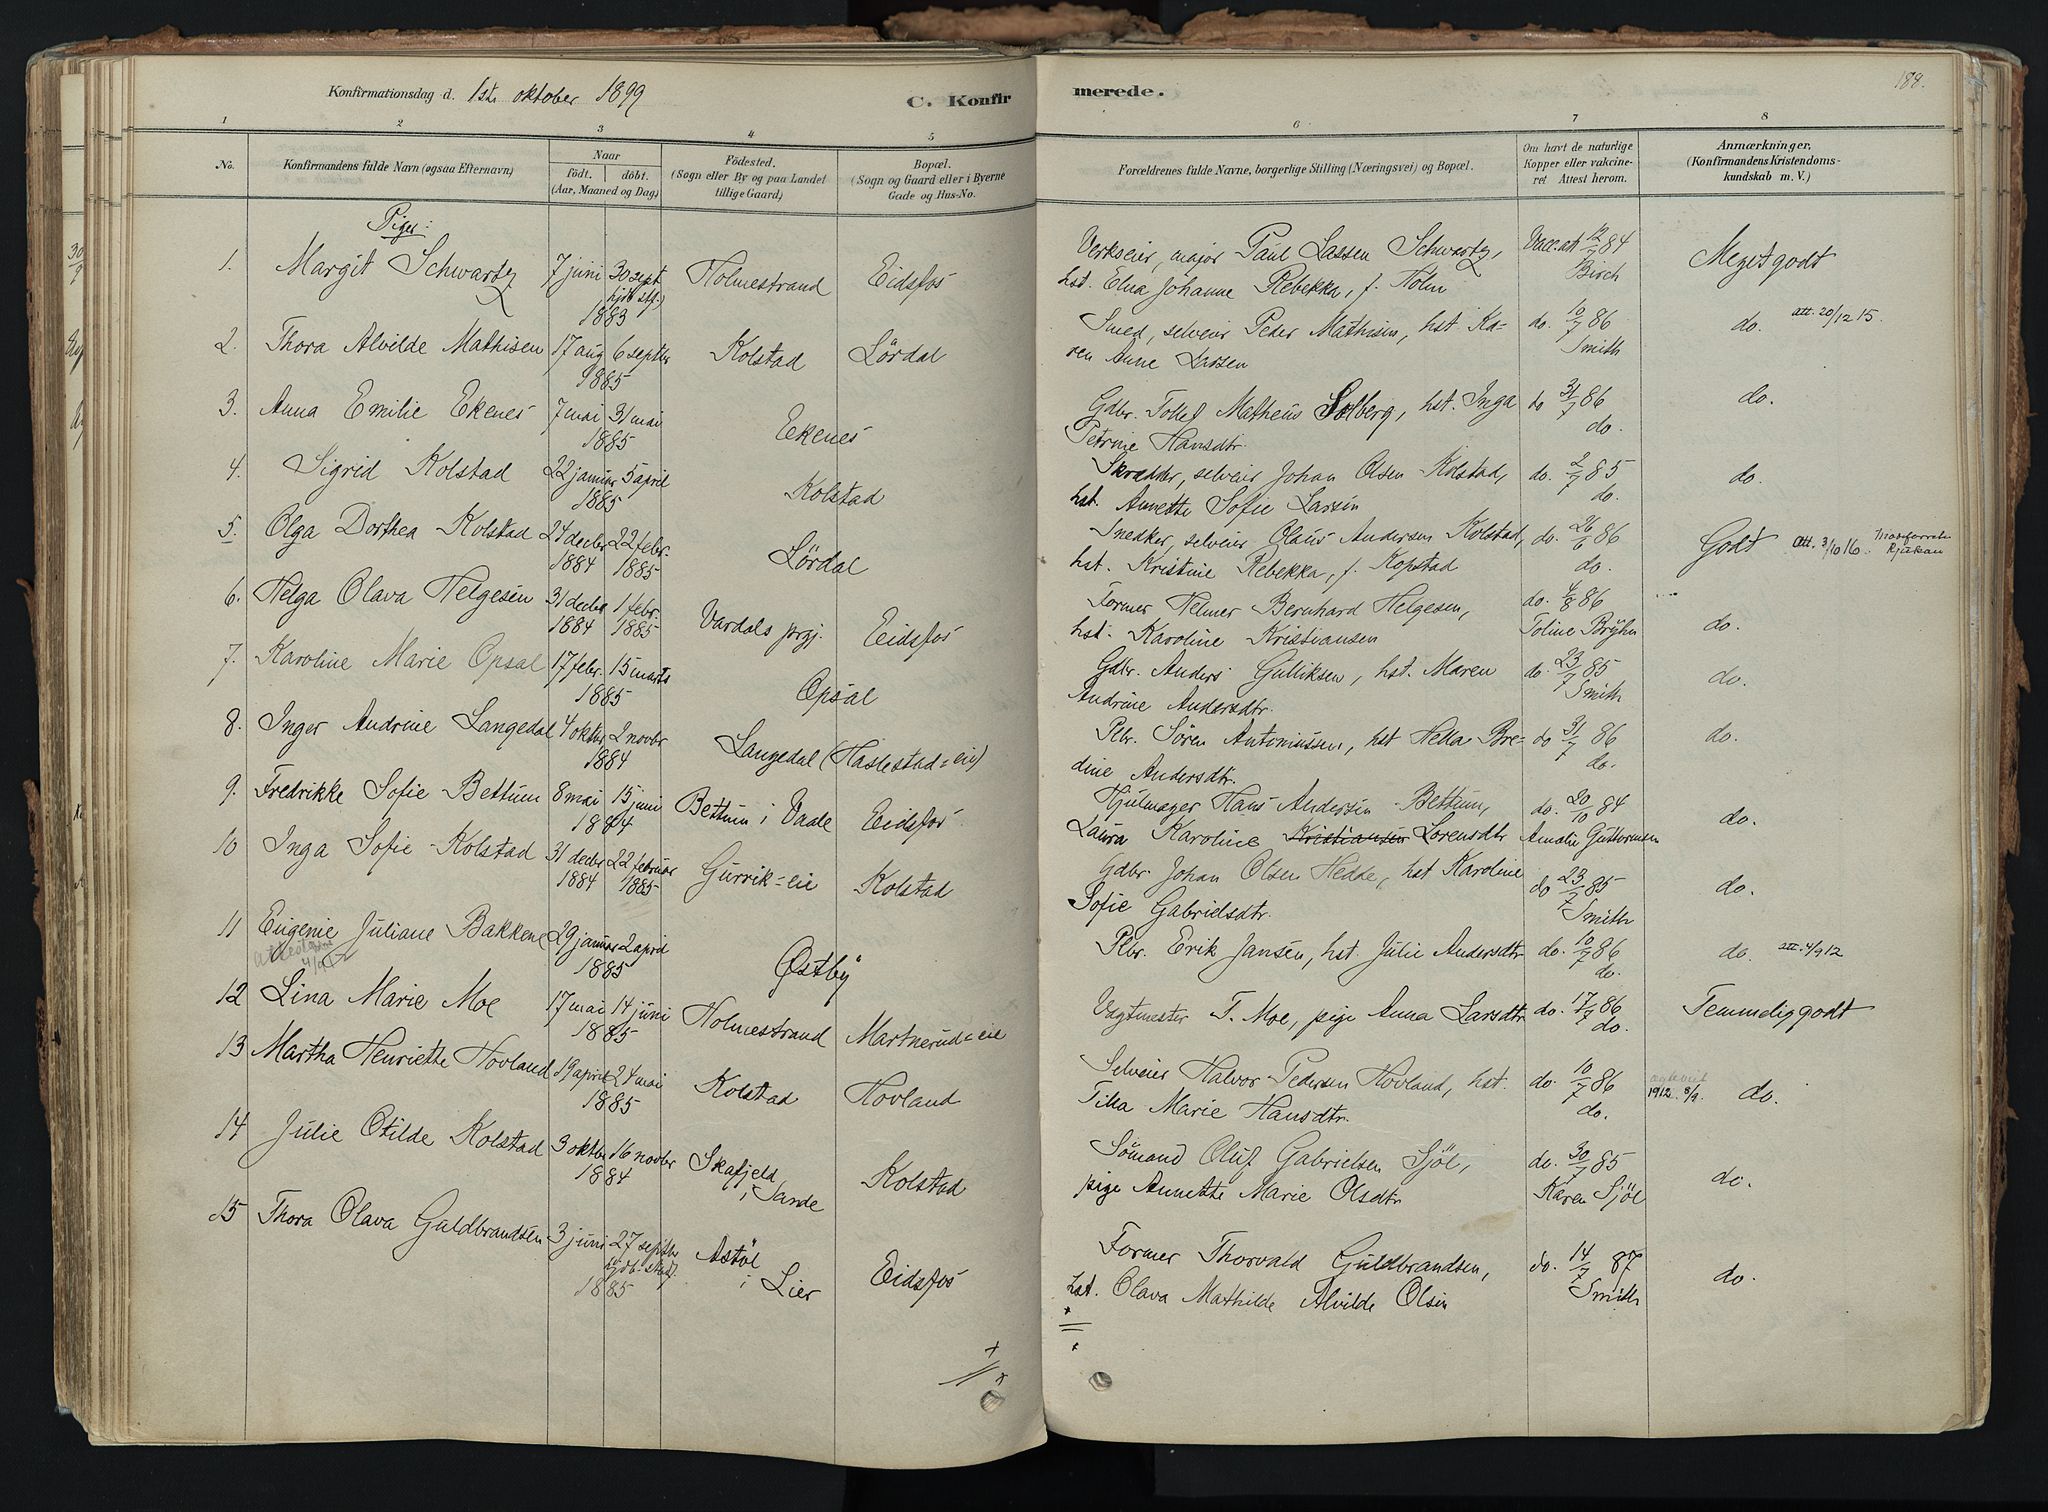 Konfirmationsdag d. 1ste oktober 1899
C. Konfirmerede.
188.
1 2 3 4 5 6 7 8
No.
Konfirmandens fulde Navn (ogsaa Efternavn)
Naar
födt. döbt.
(Aar, Maaned og Dag)
Födested.
(Sogn eller By og paa Landet
tillige Gaard)
Bopæl.
(Sogn og Gaard eller i Byerne
Gade og Hus-No.
Forældrenes fulde Navne, borgerlige Stilling (Næringsvei) og Bopæl.
Om havt de naturlige
Kopper eller vakcine-
ret Attest herom.
Anmærkninger,
(Konfirmandens Kristendoms-
kundskab m. V.)
Piger:
1. Margit Schwartz 7 juni 30 sept. 1883 Holmestrand Eidsfos
Verkseier, major Paul Lassen Schwartz,
hst. Elna Johanne Rebekka, f. Holm
Vacc. att 12/7 84 Birch
Meget godt
2. Thora Alvilde Mathisen 17 aug 6 septbr 1885 Kolstad Lördal
Smed, selveier Peder Mathisen, hst. Ka-
ren Anne Larsen
do. 10/7 86 Smith
do. att. 20/12 15.
3. Anna Emilie Ekenes 7 mai 31 mai 1885 Ekenes
Gdbr. Tollef Matheus Solberg, hst. Inga
Petrine Hansdtr.
do 31/7 86 do.
do.
4. Sigrid Kolstad 22 januar 5 april 1885 Kolstad
Skrædder, selveier Johan Olsen Kolstad,
hst. Annette Sofie Larsen
do. 2/7 85 do.
do.
5. Olga Dorthea Kolstad 24 decbr 1884 22 febr. 1885 Lördal
Snedker, selveier Olaus Andersen Kolstad,
hst. Kristine Rebekka, f. Kopstad
do. 26/6 86 do.
Godt att. 3/10 16. Rjukan
6. Helga Olava Helgesen 31 decbr 1884 1 febr. 1885 Vardals prgj. Eidsfos
Former Helmer Bernhard Helgesen,
hst. Karoline Kristiansen
do. 4/8 86 Toline Bryhn
do.
7. Karoline Marie Opsal 17 febr. 15 marts 1885 Opsal
Gdbr. Anders Gulliksen, hst. Maren
Andrine Andersdtr.
do. 23/7 85 Smith
do.
8. Inger Andrine Langedal 4 oktbr 2 novbr 1884 Langedal (Haslestad=eie)
Plbr. Sören Antoniussen, hst Hella Bre-
dine Andersdtr.
do 31/7 86 do.
do.
9. Fredrikke Sofie Bettum 8 mai 15 juni 1884 Bettum i Vaale Eidsfos
Hjulmager Hans Andersen Bettum,
Laura Karoline Kristiansen Lorensdtr
do. 20/10 84 Amalie Guttormsen
do.
10 Inga Sofie Kolstad 31 decbr 1884 22 februar 1885 Gurrik=eie Kolstad
Gdbr. Johan Olsen Hedde, hst Karoline
Sofie Gabrielsdtr.
do 23/7 85 Smith
do.
11 Eugenie Juliane Bakkene 29 januar 2 april 1885 Østby
Plbr. Erik Jansen, hst. Julie Andersdtr
do. 10/7 86 do.
do. att. 4/9 12
12 Lina Marie Moe 17 mai 14 juni 1885 Holmestrand Martnerud=eie
Vagtmester T. Moe, pige Anna Larsdtr
do. 17/7 86 do.
Temmelig godt
13 Martha Henriette Hovland 19 april 24 mai 1885 Kolstad Hovland
Selveier Halvor Pedersen Hovland, hst.
Tilla Marie Hansdtr.
do. 10/7 86 do.
1912 8/9. do.
14 Julie Otilde Kolstad 3 oktbr 16 novbr 1884 Skafjeld i Sande Kolstad
Sömand Oluf Gabrielsen Sjöl,
pige Annette Marie Olsdtr
do. 30/7 85 Karen Sjöl
do.
15 Thora Olava Guldbrandsen 3 juni 27 septbr 1885 Astöl i Lier Eidsfos
Former Thorvald Guldbrandsen,
hst. Olava Mathilde Alvilde Olsen
do. 14/7 87 Smith
do.